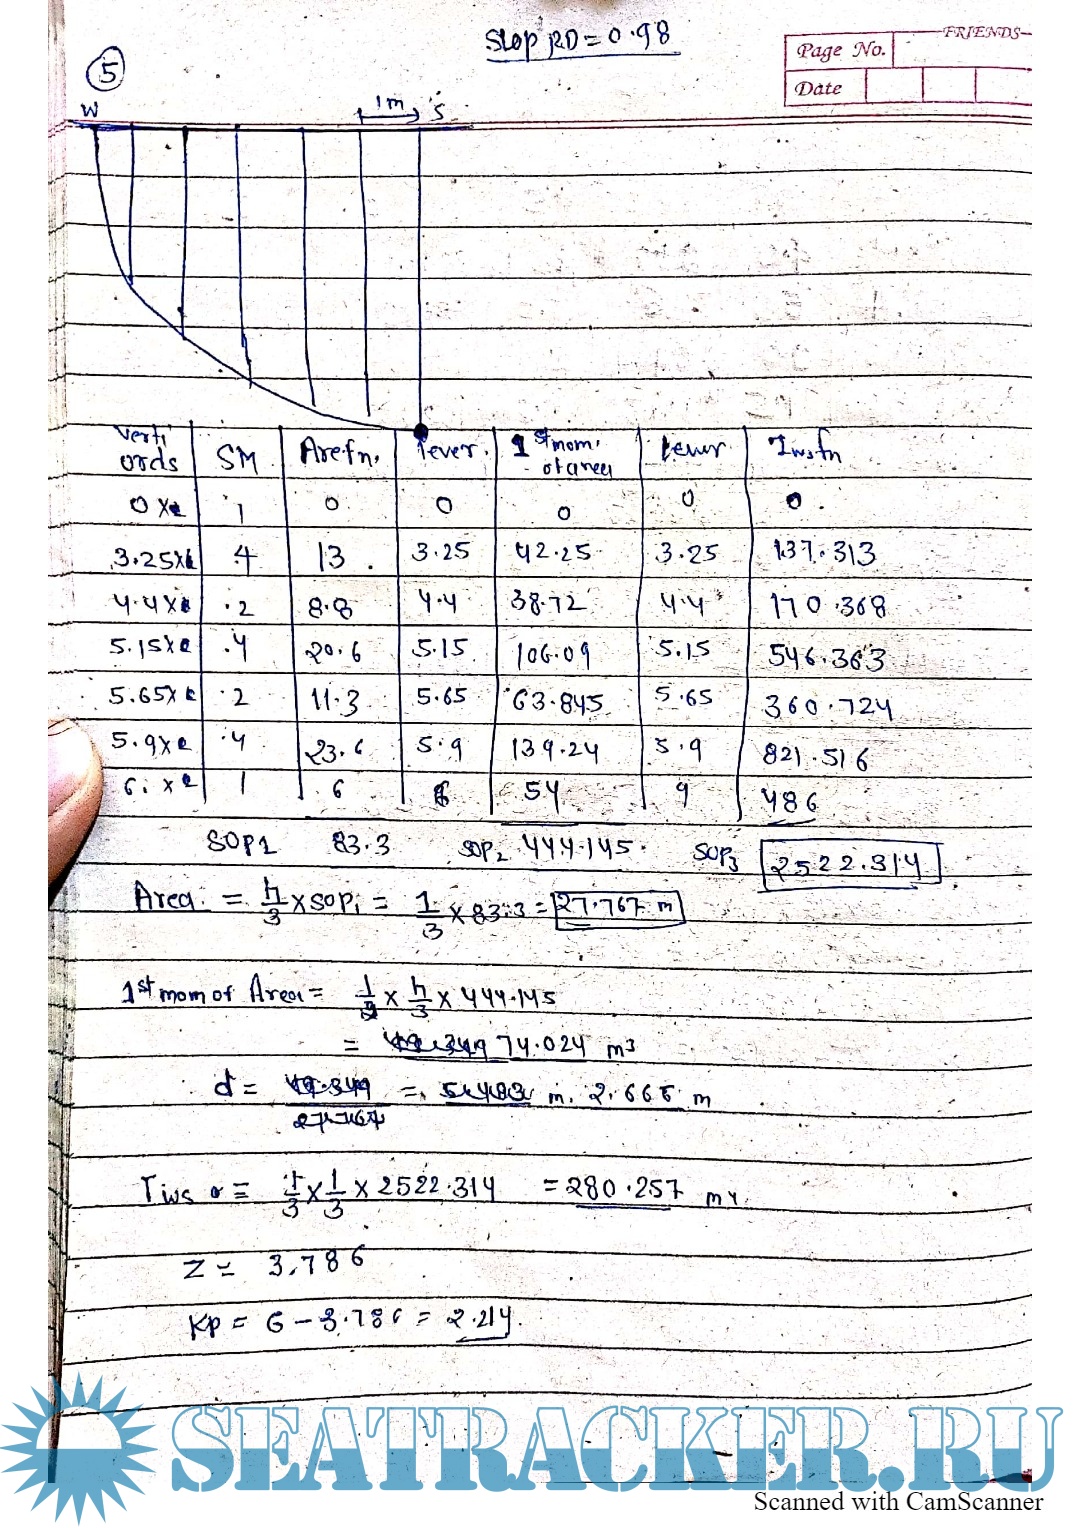 Slop RD = 0.98
FRIENDS
Page No.
Date
5
W 1m S
Verti ords SM Arefn. lever. 1st mom. of area lever Iwsfn
0 1 0 0 0 0 0.
3.25 4 13. 3.25 42.25 3.25 137.313
4.4 2 8.8 4.4 38.72 4.4 170.368
5.15 4 20.6 5.15 106.09 5.15 546.363
5.65 2 11.3 5.65 63.845 5.65 360.724
5.9 4 23.6 5.9 139.24 5.9 821.516
6. 1 6 54 9 486
SOP1 83.3 SOP2 444.145. SOP3 2522.314
Area. = h/3 x SOP1 = 1/3 x 83.3 = 27.767 m
1st mom of Area = 1/2 x h/3 x 444.145
= 74.024 m3
d = = m. 2.666 m
= 1/3 x 1/3 x 2522.314 = 280.257 m4.
Z = 3.786
KP = 6 - 3.786 = 2.214.
SEATRACKER.RU
Scanned with CamScanner